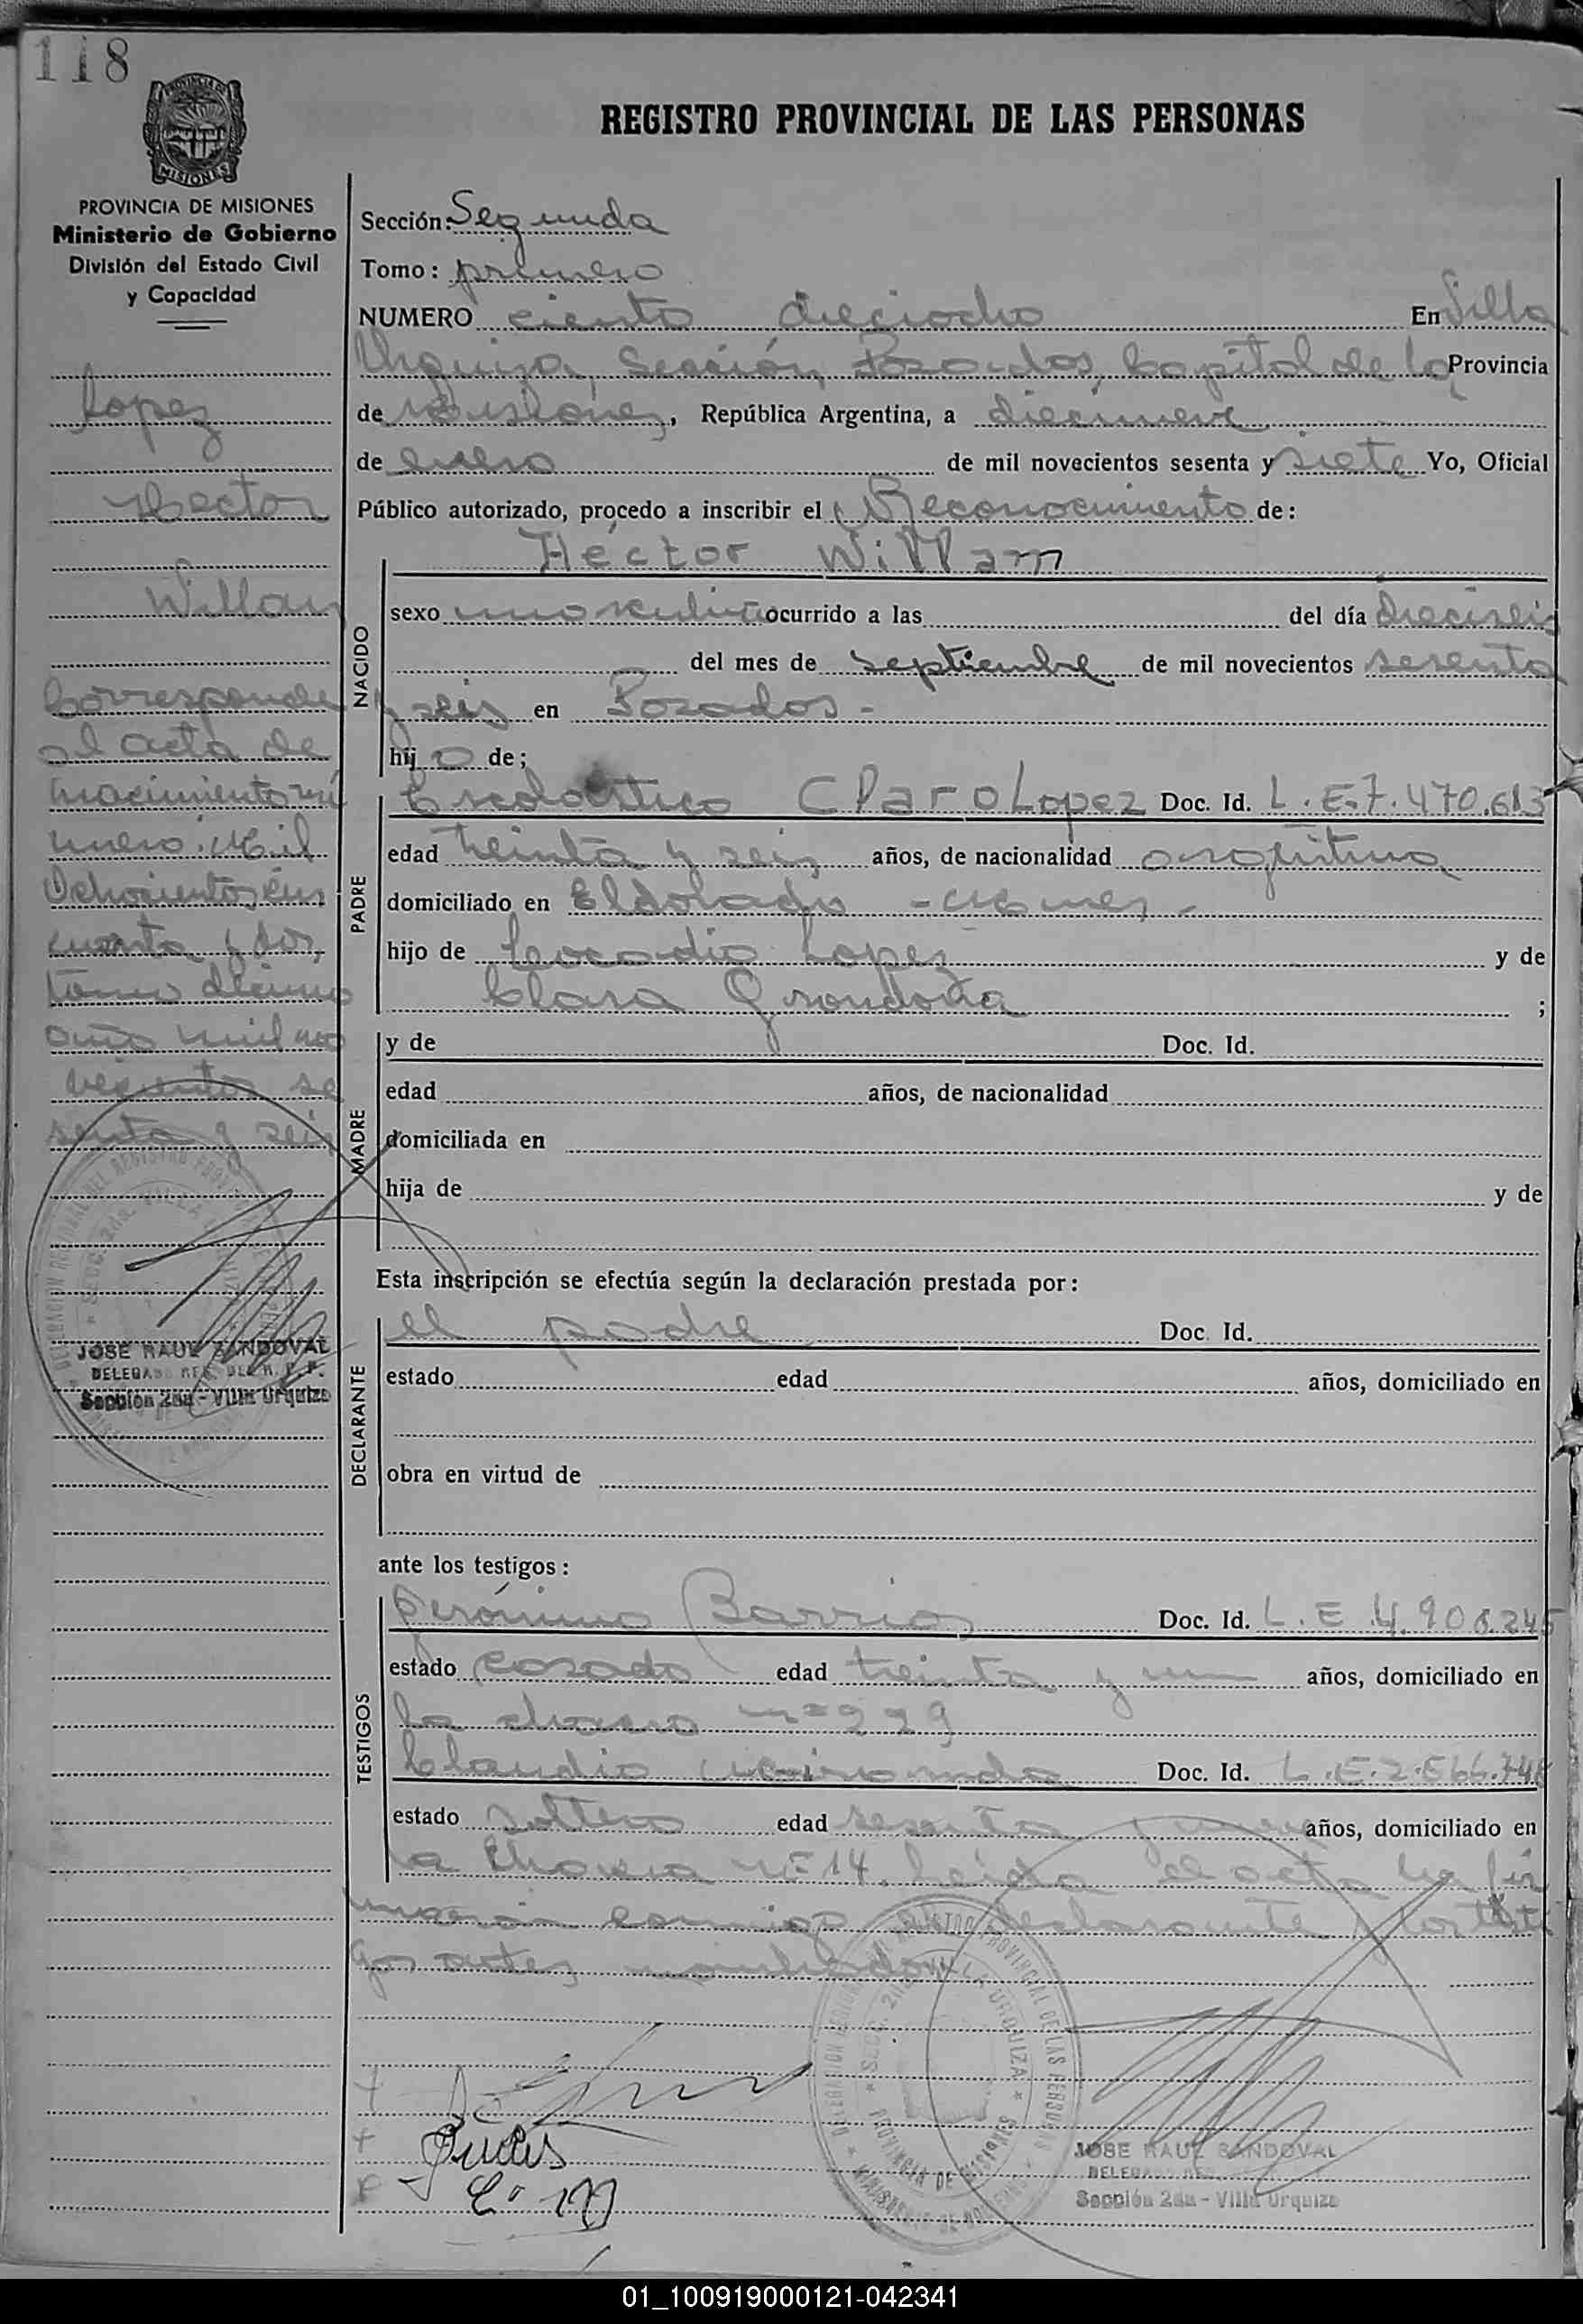 118
PROVINCIA DE MISIONES
REGISTRO PROVINCIAL DE LAS PERSONAS
PROVINCIA DE MISIONES
Ministerio de Gobierno
División del Estado Civil
y Capacidad
Lopez
Hector
Willan
Corresponde
al acta de
nacimiento nú
mero: Mil
Ochocientos cin
cuenta y dos,
tomo décimo
año mil no
vecientos se
senta y seis
JOSE RAUL SANDOVAL
DELEGADO REG. DEL R. P. P.
Sección 2da - Villa Urquiza
Sección: Segunda
Tomo: primero
NUMERO ciento dieciocho En Villa
Urquiza, Sección, Posadas, Capital de la Provincia
de Misiones, República Argentina, a diecinueve
de enero de mil novecientos sesenta y siete Yo, Oficial
Público autorizado, procedo a inscribir el Reconocimiento de:
Héctor Willam
NACIDO
sexo masculino ocurrido a las del día dieciseis
del mes de septiembre de mil novecientos sesenta
y seis en Posadas -
hijo de;
PADRE
Escolastico Claro Lopez Doc. Id. L. E. 7.470.613
edad treinta y seis años, de nacionalidad argentina
domiciliado en Eldorado - Mnes -
hijo de Leocadio Lopez y de
Clara Grondona ;
MADRE
y de Doc. Id.
edad años, de nacionalidad
domiciliada en
hija de y de
Esta inscripción se efectúa según la declaración prestada por:
DECLARANTE
el padre Doc. Id.
estado edad años, domiciliado en
obra en virtud de
ante los testigos:
TESTIGOS
Gerónimo Barrios Doc. Id. L. E 4.908.245
estado casado edad treinta y un años, domiciliado en
la chacra nº 229
Claudio Doc. Id. L. E. 2.566.748
estado soltero edad sesenta y años, domiciliado en
la Chacra nº 14. Leída el acta la fir
maron conmigo el declarante y los testi
gos antes nombrados
JOSE RAUL SANDOVAL
DELEGADO REG.
Sección 2da - Villa Urquiza
01_100919000121-042341